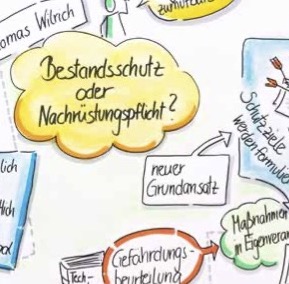 Thomas Wilrich
zumutbar
Bestandsschutz
oder
Nachrüstungspflicht?
Schutzziele
werden formulier
neuer
Grundansatz
lich
lich
Maßnahmen
in Eigenveran
Gefährdungs-
beurteilung
Tech-